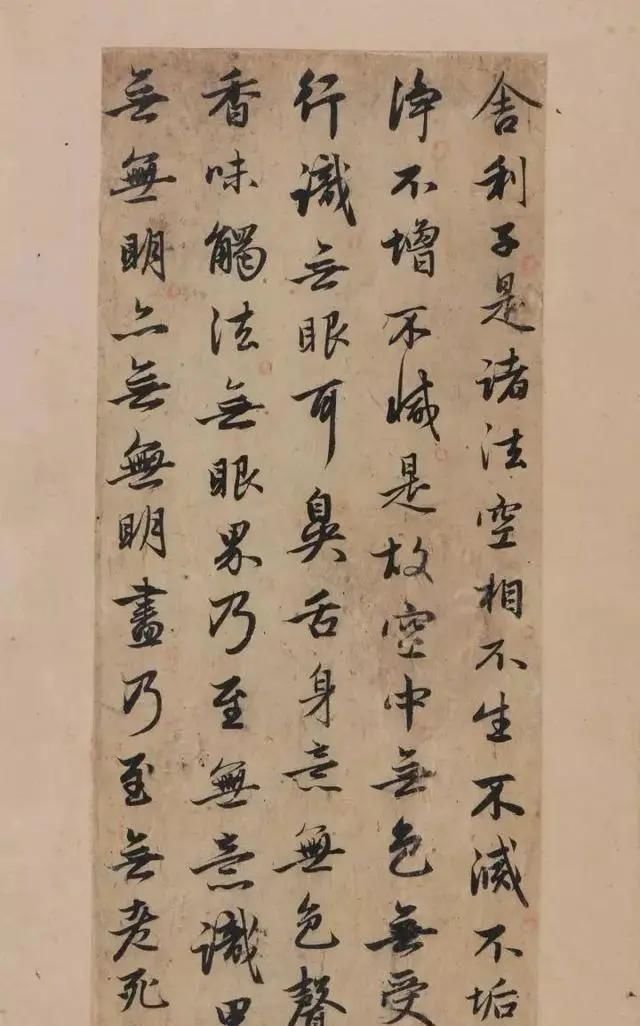 舍利子是諸法空相不生不滅不垢
淨不增不減是故空中無色無受
行識無眼耳鼻舌身意無色聲
香味觸法無眼界乃至無意識界
無無明亦無無明盡乃至無老死